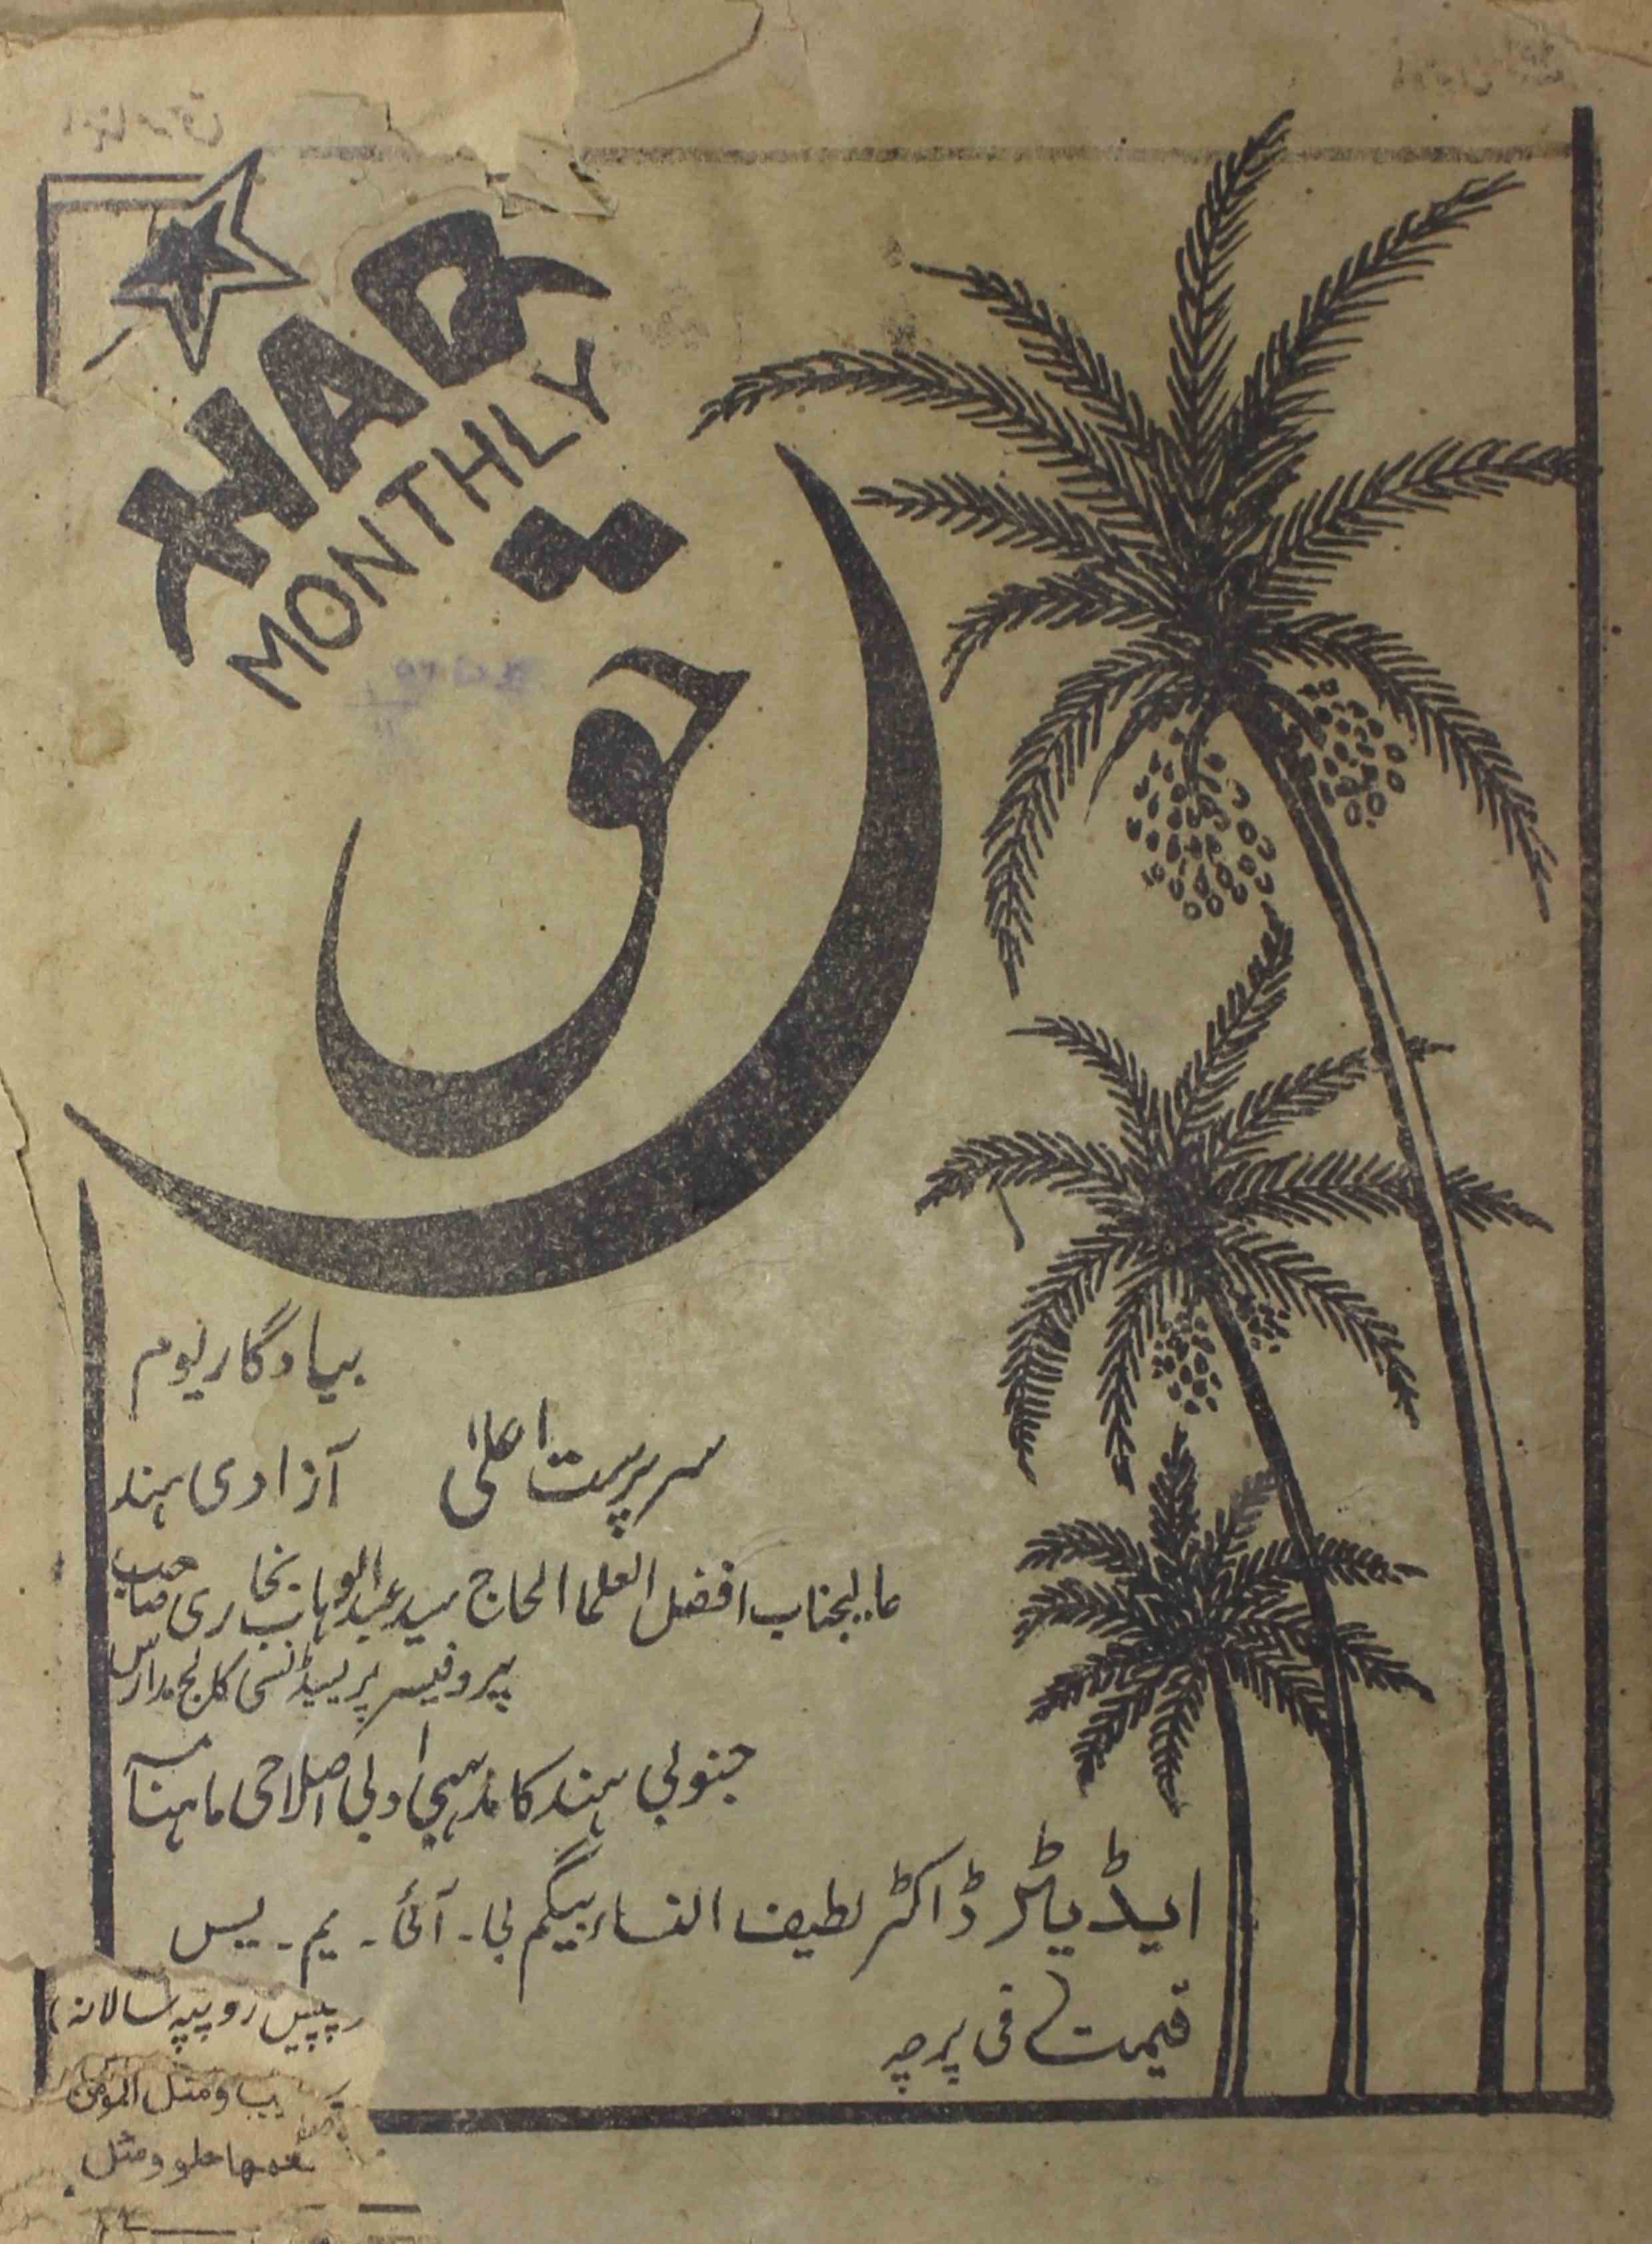 HAQ
MONTHLY
حق
بیادگار یوم
آزادی ہند
سرپرست اعلیٰ
عالیجناب افضل العلما الحاج سید عبدالوہاب بخاری صاحب
پروفیسر پریسیڈنسی کالج مدراس
جنوبی ہند کا مذہبی ادبی اصلاحی ماہنامہ
ایڈیٹر ڈاکٹر لطیف النساء بیگم بی۔ آئی۔ یم۔ یس
قیمت فی پرچہ
روپیہ سالانہ
ومثل المومن
طعمها حلو ومثل